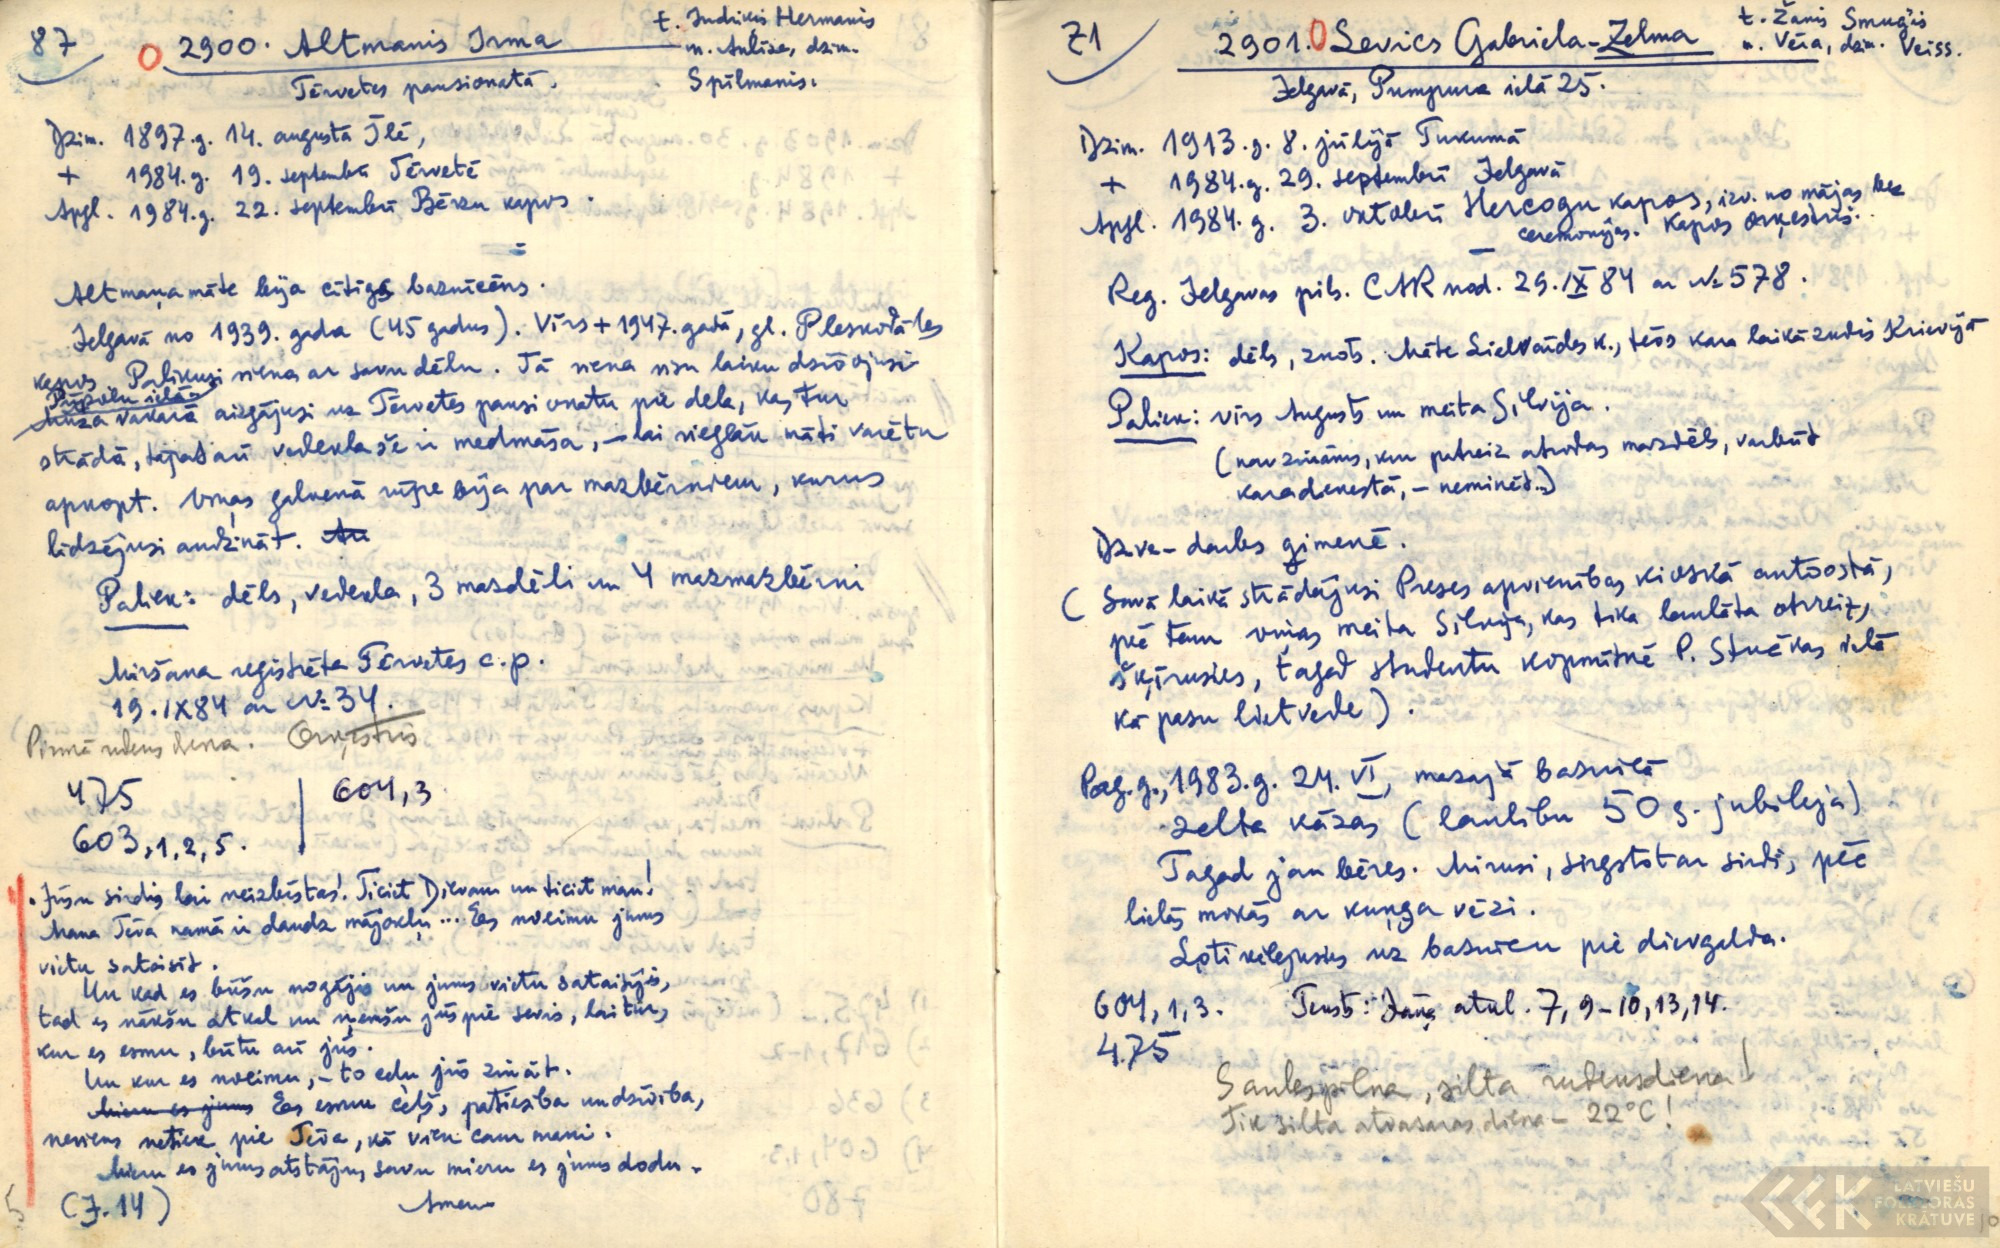 87
2900. Altmanis Irma
t. Indriķis Hermanis
m. Anlīze, dzim.
Spilmanis.
Tērvetes pansionatā.
Dzim. 1897.g. 14. augustā Īlē,
+ 1984.g. 19. septembrī Tērvetē
Apgl. 1984.g. 22. septembrī Bērzu kapos.
Altmaņa māte bija cītīgs baznīcēns.
Jelgavā no 1939. gada (45 gadus). Vīrs + 1947. gadā, gl. Pleskodāles
kapos. Palikusi viena ar savu dēlu. Tā viena visu laiku dzīvojusi
Pūpolu ielā.
Mūža vakarā aizgājusi uz Tērvetes pansionatu pie dēla, kas tur
strādā, tāpat arī vedekla še ir medmāsa, – lai vieglāk māti varētu
apkopt. Viņas galvenā rūpe bija par mazbērniem, kurus
līdzējusi audzināt. Au
Paliek: dēls, vedekla, 3 mazdēli un 4 mazmazbērni
Miršana reģistrēta Tērvetes c.p.
19.IX 84 ar № 34.
Pirmā rudens diena. Orķestris
475 | 604,3
603,1,2,5.
Jūsu sirdis lai neizbīstas! Ticiet Dievam un ticiet man!
Mana Tēva namā ir daudz mājokļu... Es noeimu jums
vietu sataisīt.
Un kad es būšu nogājis un jums vietu sataisījis,
tad es nākšu atkal un ņemšu jūs pie sevis, lai tur,
kur es esmu, būtu arī jūs.
Un kur es noeimu, – to ceļu jūs zināt.
Mieru es jums Es esmu ceļš, patiesība un dzīvība,
neviens netiek pie Tēva, kā vien caur mani.
Mieru es jums atstāju, savu mieru es jums dodu.
(J. 14) Amen
5
71
2901. Levics Gabriela-Zelma
t. Žanis Smuģis
m. Vēra, dzim. Veiss.
Jelgavā, Pumpura ielā 25.
Dzim. 1913.g. 8. jūlijā Tukumā
+ 1984.g. 29. septembrī Jelgavā
Apgl. 1984.g. 3. oktobrī Hercogu kapos, izv. no mājas bez
ceremonijas. Kapos orķestris.
Reg. Jelgavas pils. CAR nod. 29.IX 84 ar № 578.
Kapos: dēls, znots. Māte Lielvārdes k., tēvs kara laikā zudis Krievijā
Paliek: vīrs Augusts un meita Silvija.
(nav zināms, kur patreiz atrodas mazdēls, varbūt
karadienestā, – neminēt.)
Dzīve – darbs ģimenē.
(Savā laikā strādājusi Preses apvienības kioskā autoostā,
pie tam viņas meita Silvija, kas tika laulāta otrreiz,
šķīrusies, tagad studentu kopmītnē P. Stučkas ielā
kā pasu lietvede).
Pag. g., 1983.g. 24. VI, mazajā baznīcā
zelta kāzas (laulību 50 g. jubileja)
Tagad jau bēres. Mirusi, sirgstot ar sirdi, pēc
lielās mokās ar kuņģa vēzi.
Ļoti vēlējusies uz baznīcu pie dievgalda.
604,1,3. Teksts: Jāņa atkl. 7, 9–10, 13, 14.
475
Saulespilna, silta rudensdiena!
Tik silta atvasaras diena – 22°C!
LATVIEŠU
FOLKLORAS
KRĀTUVE